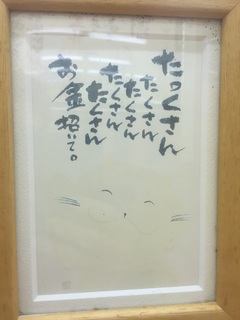 たっくさん
たくさん
たくさん
たくさん
たくさん
お金招いて。